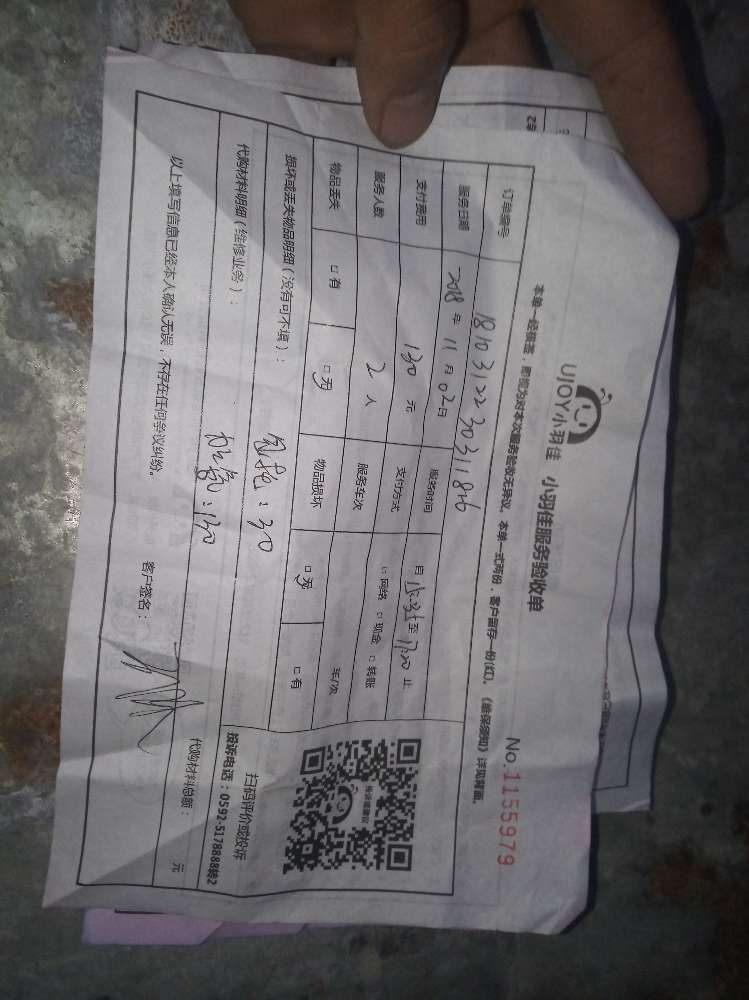 UJOY小羽佳 小羽佳服务验收单
No.1155979
本单一经填签，更视为对本次服务验收无异议。本单一式两份，客户留存一份(红)。《维保须知》详见背面。
订单编号 1810312230311826
服务日期 2018 年 11 月 02 日 服务时间 自 15:35 至 17:20 止
支付费用 130 元 支付方式 □ 网络 □ 现金 □ 转账
服务人数 2 人 服务车次 车/次
物品丢失 □ 有 □ 无 物品损坏 □ 无 □ 有
损坏或丢失物品明细（没有可不填）：
：30
代购材料明细（维修业务）：
：130
代购材料总额： 元
扫码评价或投诉
投诉电话：0592-5178888转2
以上填写信息已经本人确认无误，不存在任何争议纠纷。
客户签名：